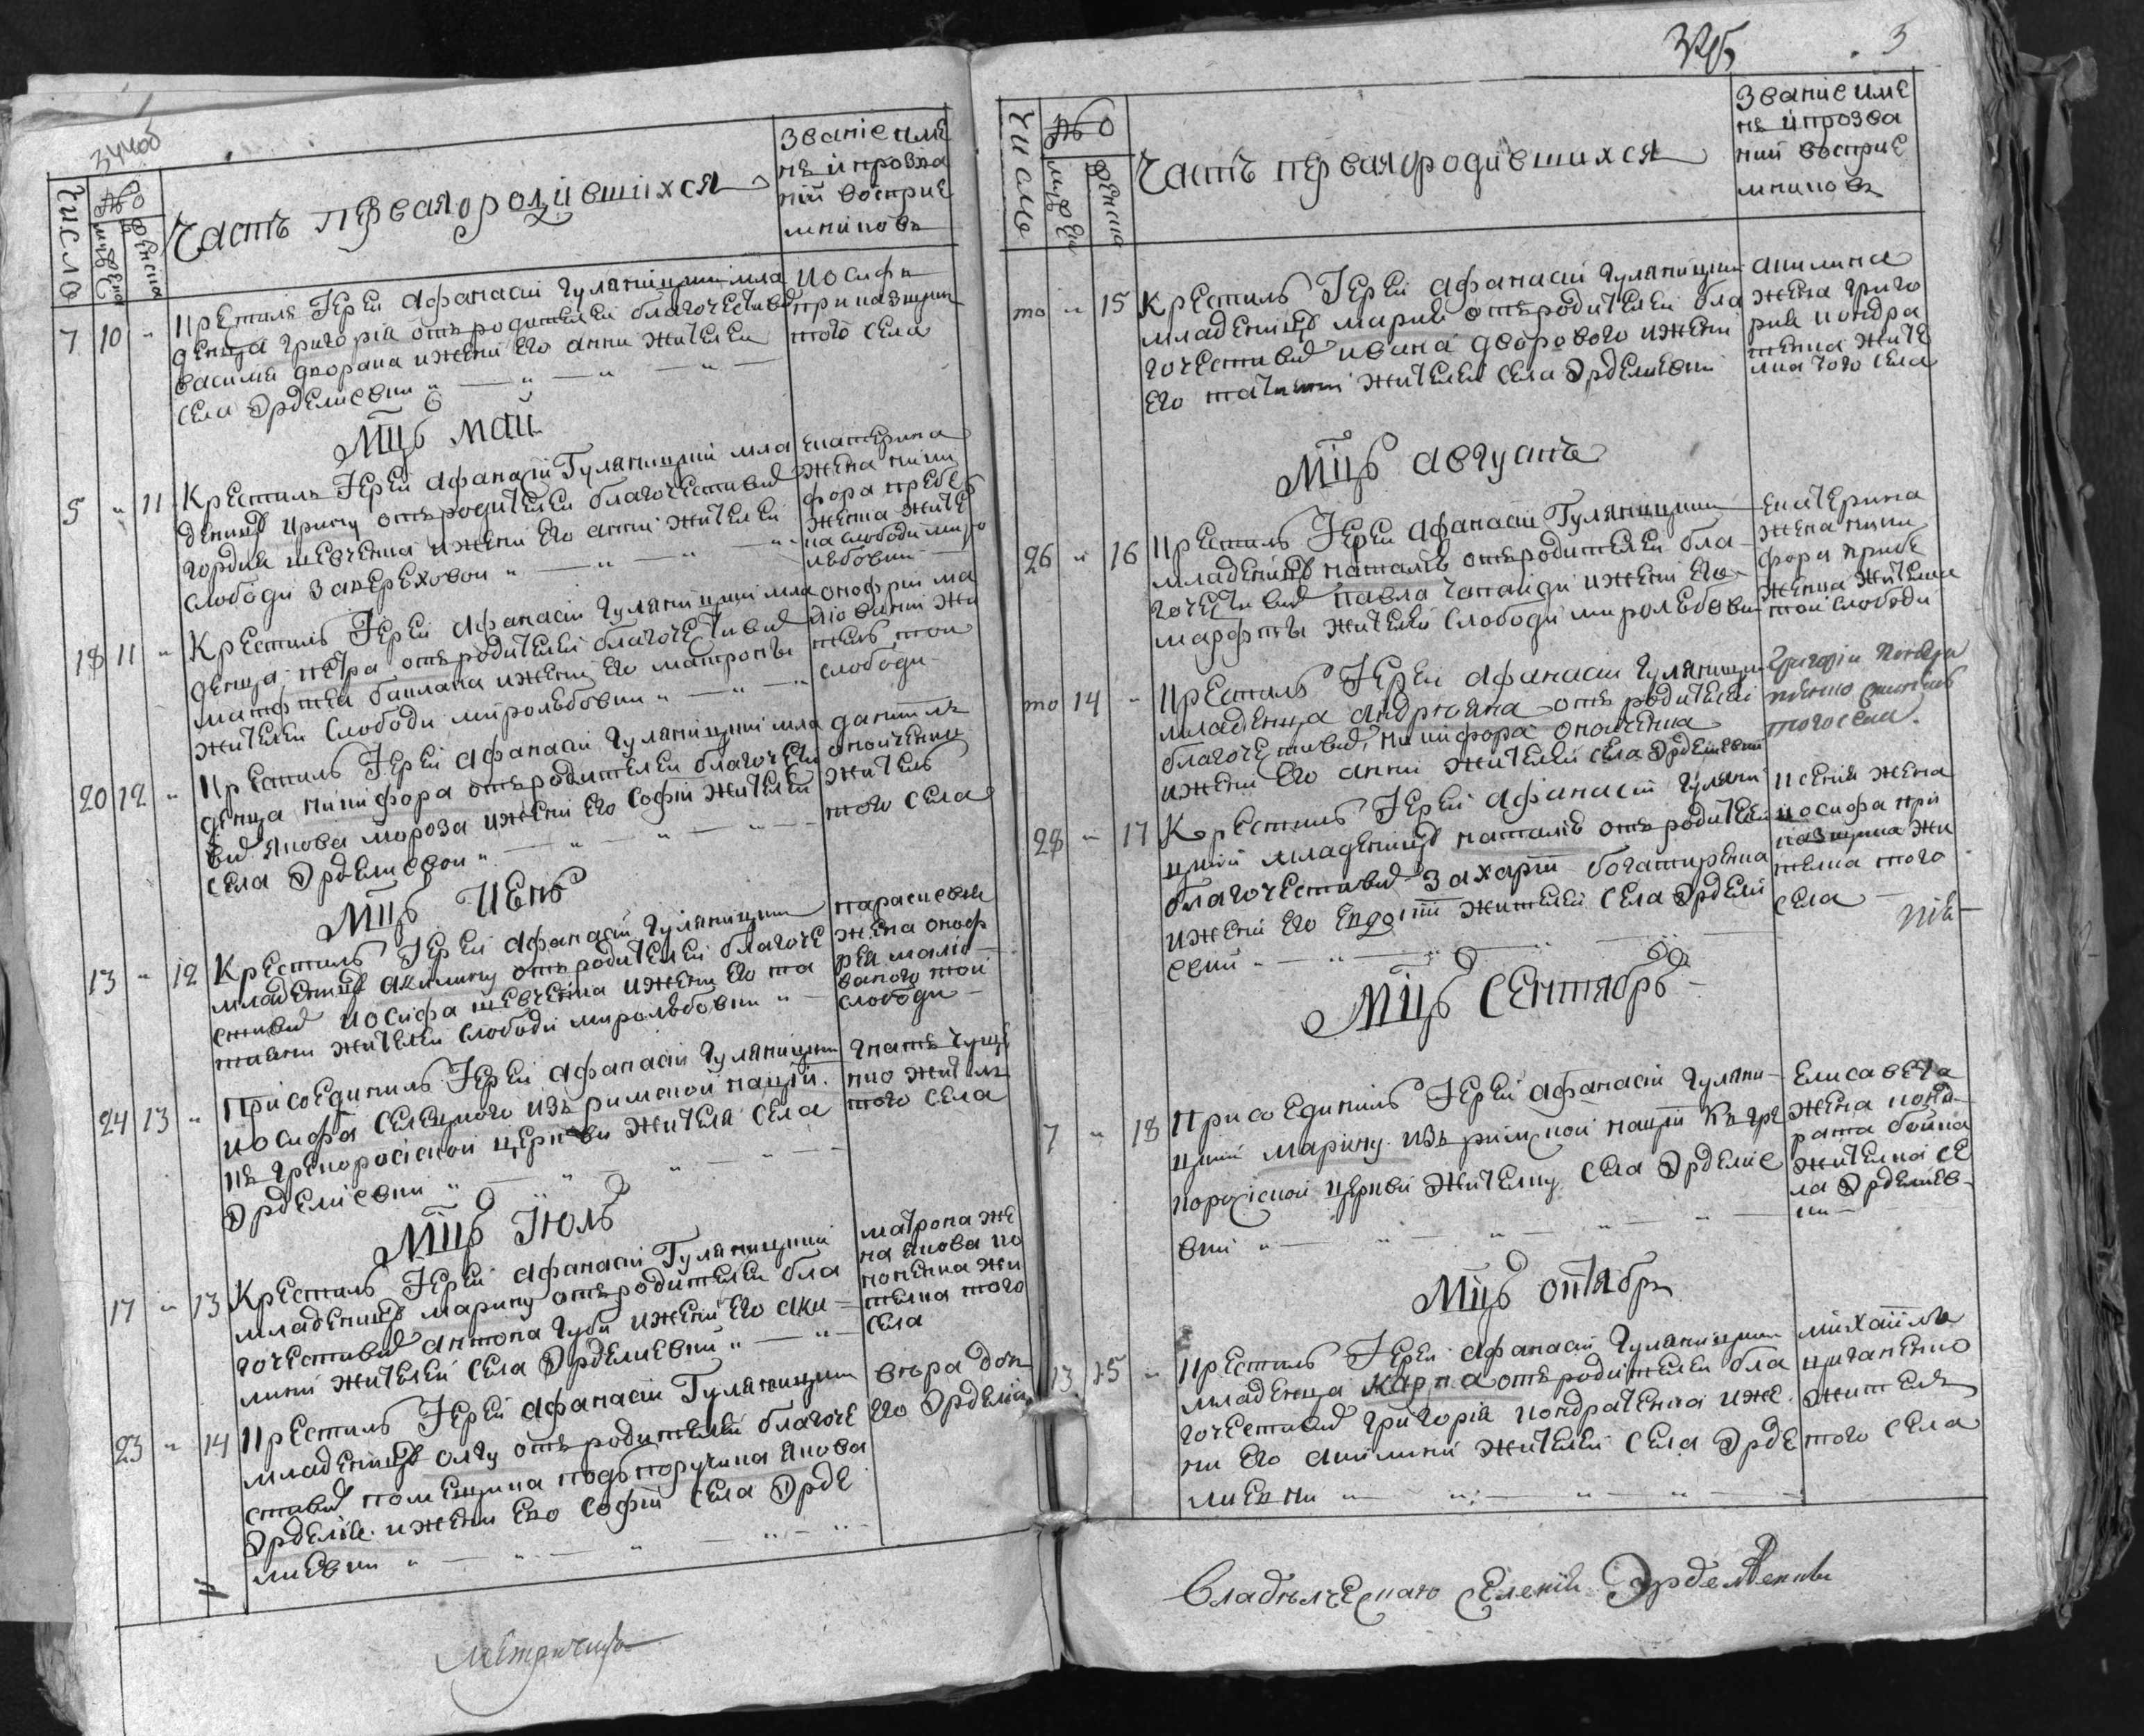 344об
Число
№
мужеска
женска
Часть первая ородившихся
Званіе име
не ипрозва
ній восприе
мниковъ
7 10 " Крестилъ Іерей афанасій гуляницкий мла
денца григорія отъ родителей благочестивих
василія дворана ижени его анни жителей
села Эрделиевки " — " — " — " —
иосифъ
приказщик
того села
Мцъ май
5 " 11 Крестилъ Іерей афанасій Гуляницкий мла
деницу ирину отъ родителей благочестивих
гордия шевченка ижени его анни жителей
слободи Завереховой " — " — " — "
екатерина
жена ники
фора требе
женка жите
ка слободи миро
льбовки —
18 11 " Крестилъ Іерей афанасій гуляницкий мла
денца петра отъ родителей благочестивих
матфея баклана ижени его матрони
жителей слободи миролюбовки " — " — "
онофрий ма
лїований жи
тель той
слободи
20 12 " Крестилъ Іерей афанасій гуляницкий мла
денца никифора отъ родителей благочести
вих якова мороза ижени его софіи жителей
села Эрделиевки " — " — " — " —
даниилъ
онойченко
житель
того села
Мцъ июнь
13 " 12 Крестилъ Іерей афанасій гуляницкий
младеницу акилину отъ родителей благоче
стивих иосифа шевченка ижени его та
тияни жителей слободи миролюбовки " —
параскевия
жена оноф
рея маліо
ваного той
слободи —
24 13 " Присоединилъ Іерей афанасій гуляницкий
иосифа селецкого изъ римской нации
къ грекоросійской церкви жителя села
Эрделиевки " — " — " — " — " —
гнатъ
жителъ
того села
Мцъ Июль
17 " 13 Крестилъ Іерей афанасій Гуляницкий
младеницу марину отъ родителей бла
гочестивих антона губи ижени его аки
лини жителей села Эрделиевки " — " —
матрона же
на якова ко
ноненка жи
телка того
села
23 " 14 Крестилъ Іерей афанасій Гуляницкий
младеницу олгу отъ родителей благоче
стивих помещика подпоручика якова
Эрделия ижени его софіи села Эрде
лиевки " — " — " — " — "
вѣра доч
его Эрделия
Метричную
3
Число
№
мужеска
женска
Часть первая ородившихся
Званіе име
не ипрозва
ний восприе
мниковъ
то " 15 Крестилъ Іерей афанасій гуляницкий
младеницу марию отъ родителей бла
гочестивих ивана дворового ижени
его татияни жителей села Эрделиевки
акилина
жена григо
рия кондра
тенка жите
лка того села
Мцъ августъ
26 " 16 Крестилъ Іерей афанасій Гуляницкий
младеницу наталию отъ родителей бла
гочестивих павла ижени его
марфти жителей слободи миролюбовки
екатерина
жена ники
фора требе
женка жителка
той слободи
то 14 " Крестилъ Іерей афанасій гуляницкий
младенца андрияна отъ родителей
благочестивих никифора онойченка
ижени его анни жителей села Эрделиевки
Григорій Кондра
тенко житель
того села.
28 " 17 Крестилъ Іерей афанасій гуляни
цкий младеницу наталию отъ родителей
благочестивих захарии богатиренка
ижени его евдокіи жителей села Эрдели
евки — " — " — " —
ксения жена
иосифа при
казщика жи
телка того
села —
Мцъ Сентябрь
7 " 18 Присоединилъ Іерей афанасій гуляни
цкий марину изъ римской нации къ гре
коросійской церкви жителку села Эрделие
вки " — " — " — " — " —
Елисавета
жена конд
рата бойка
жителка се
ла Эрделиев
ки —
Мцъ октябрь
13 15 " Крестилъ Іерей афанасій гуляницкий
младенца Карпа отъ родителей бла
гочестивих григория кондратенка иже
ни его акилини жителей села Эрде
лиевки " — " — " — " —
михаилъ
циганенко
жителъ
того села
Владѣлческаго Селенія Эрделиевки